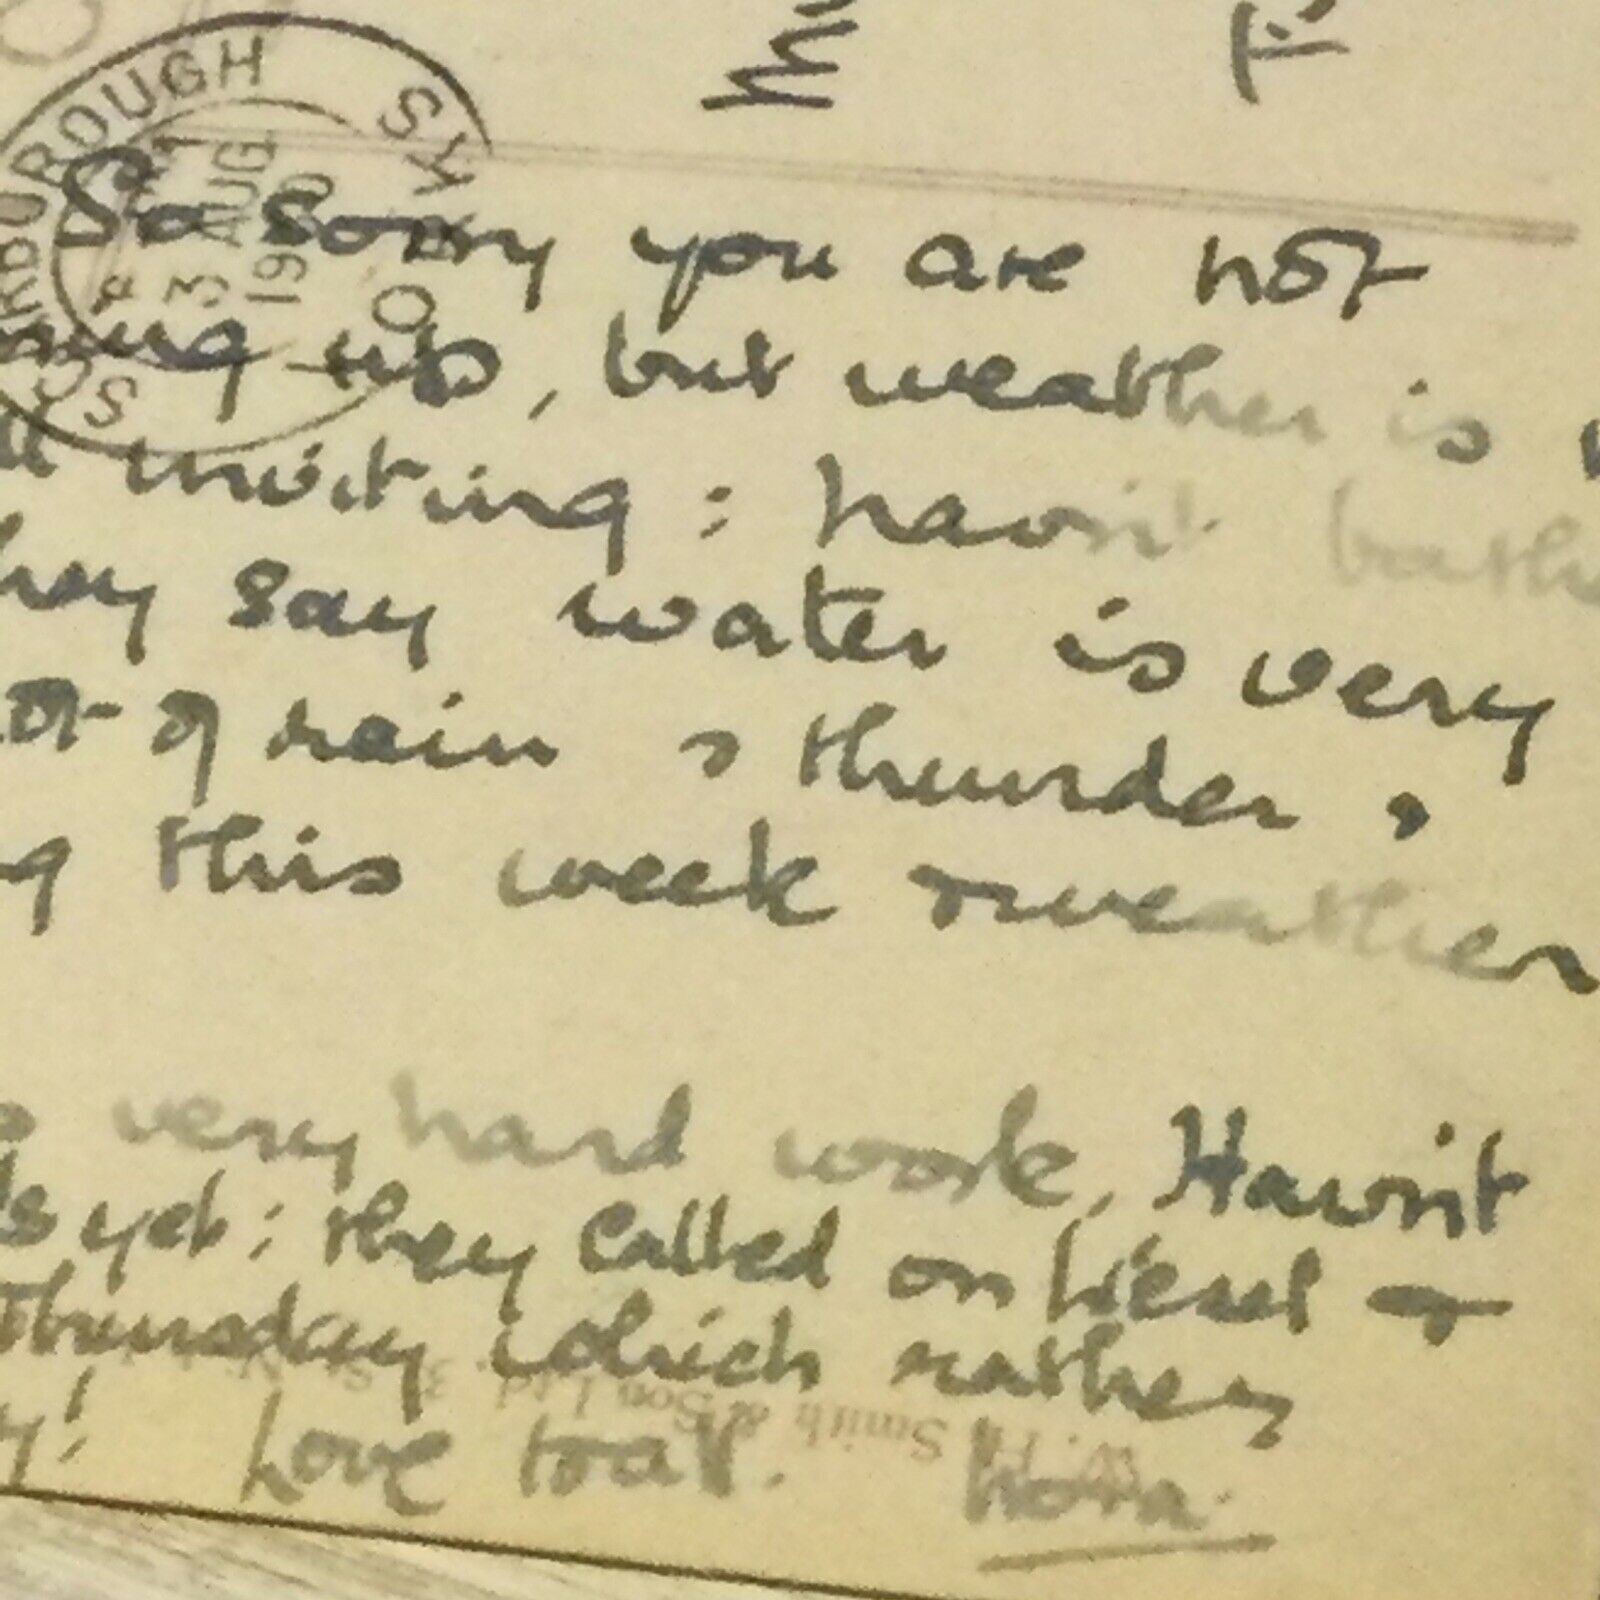 SCARBOROUGH
3 AUG
19
So sorry you are not
up, but weather is
inviting: havn't
say water is very
of rain & thunder,
this week & weather
very hard work. Havn't
yet; they called on &
Thursday which rather
Love to all. Nora
W. H. Smith & Son Ltd.